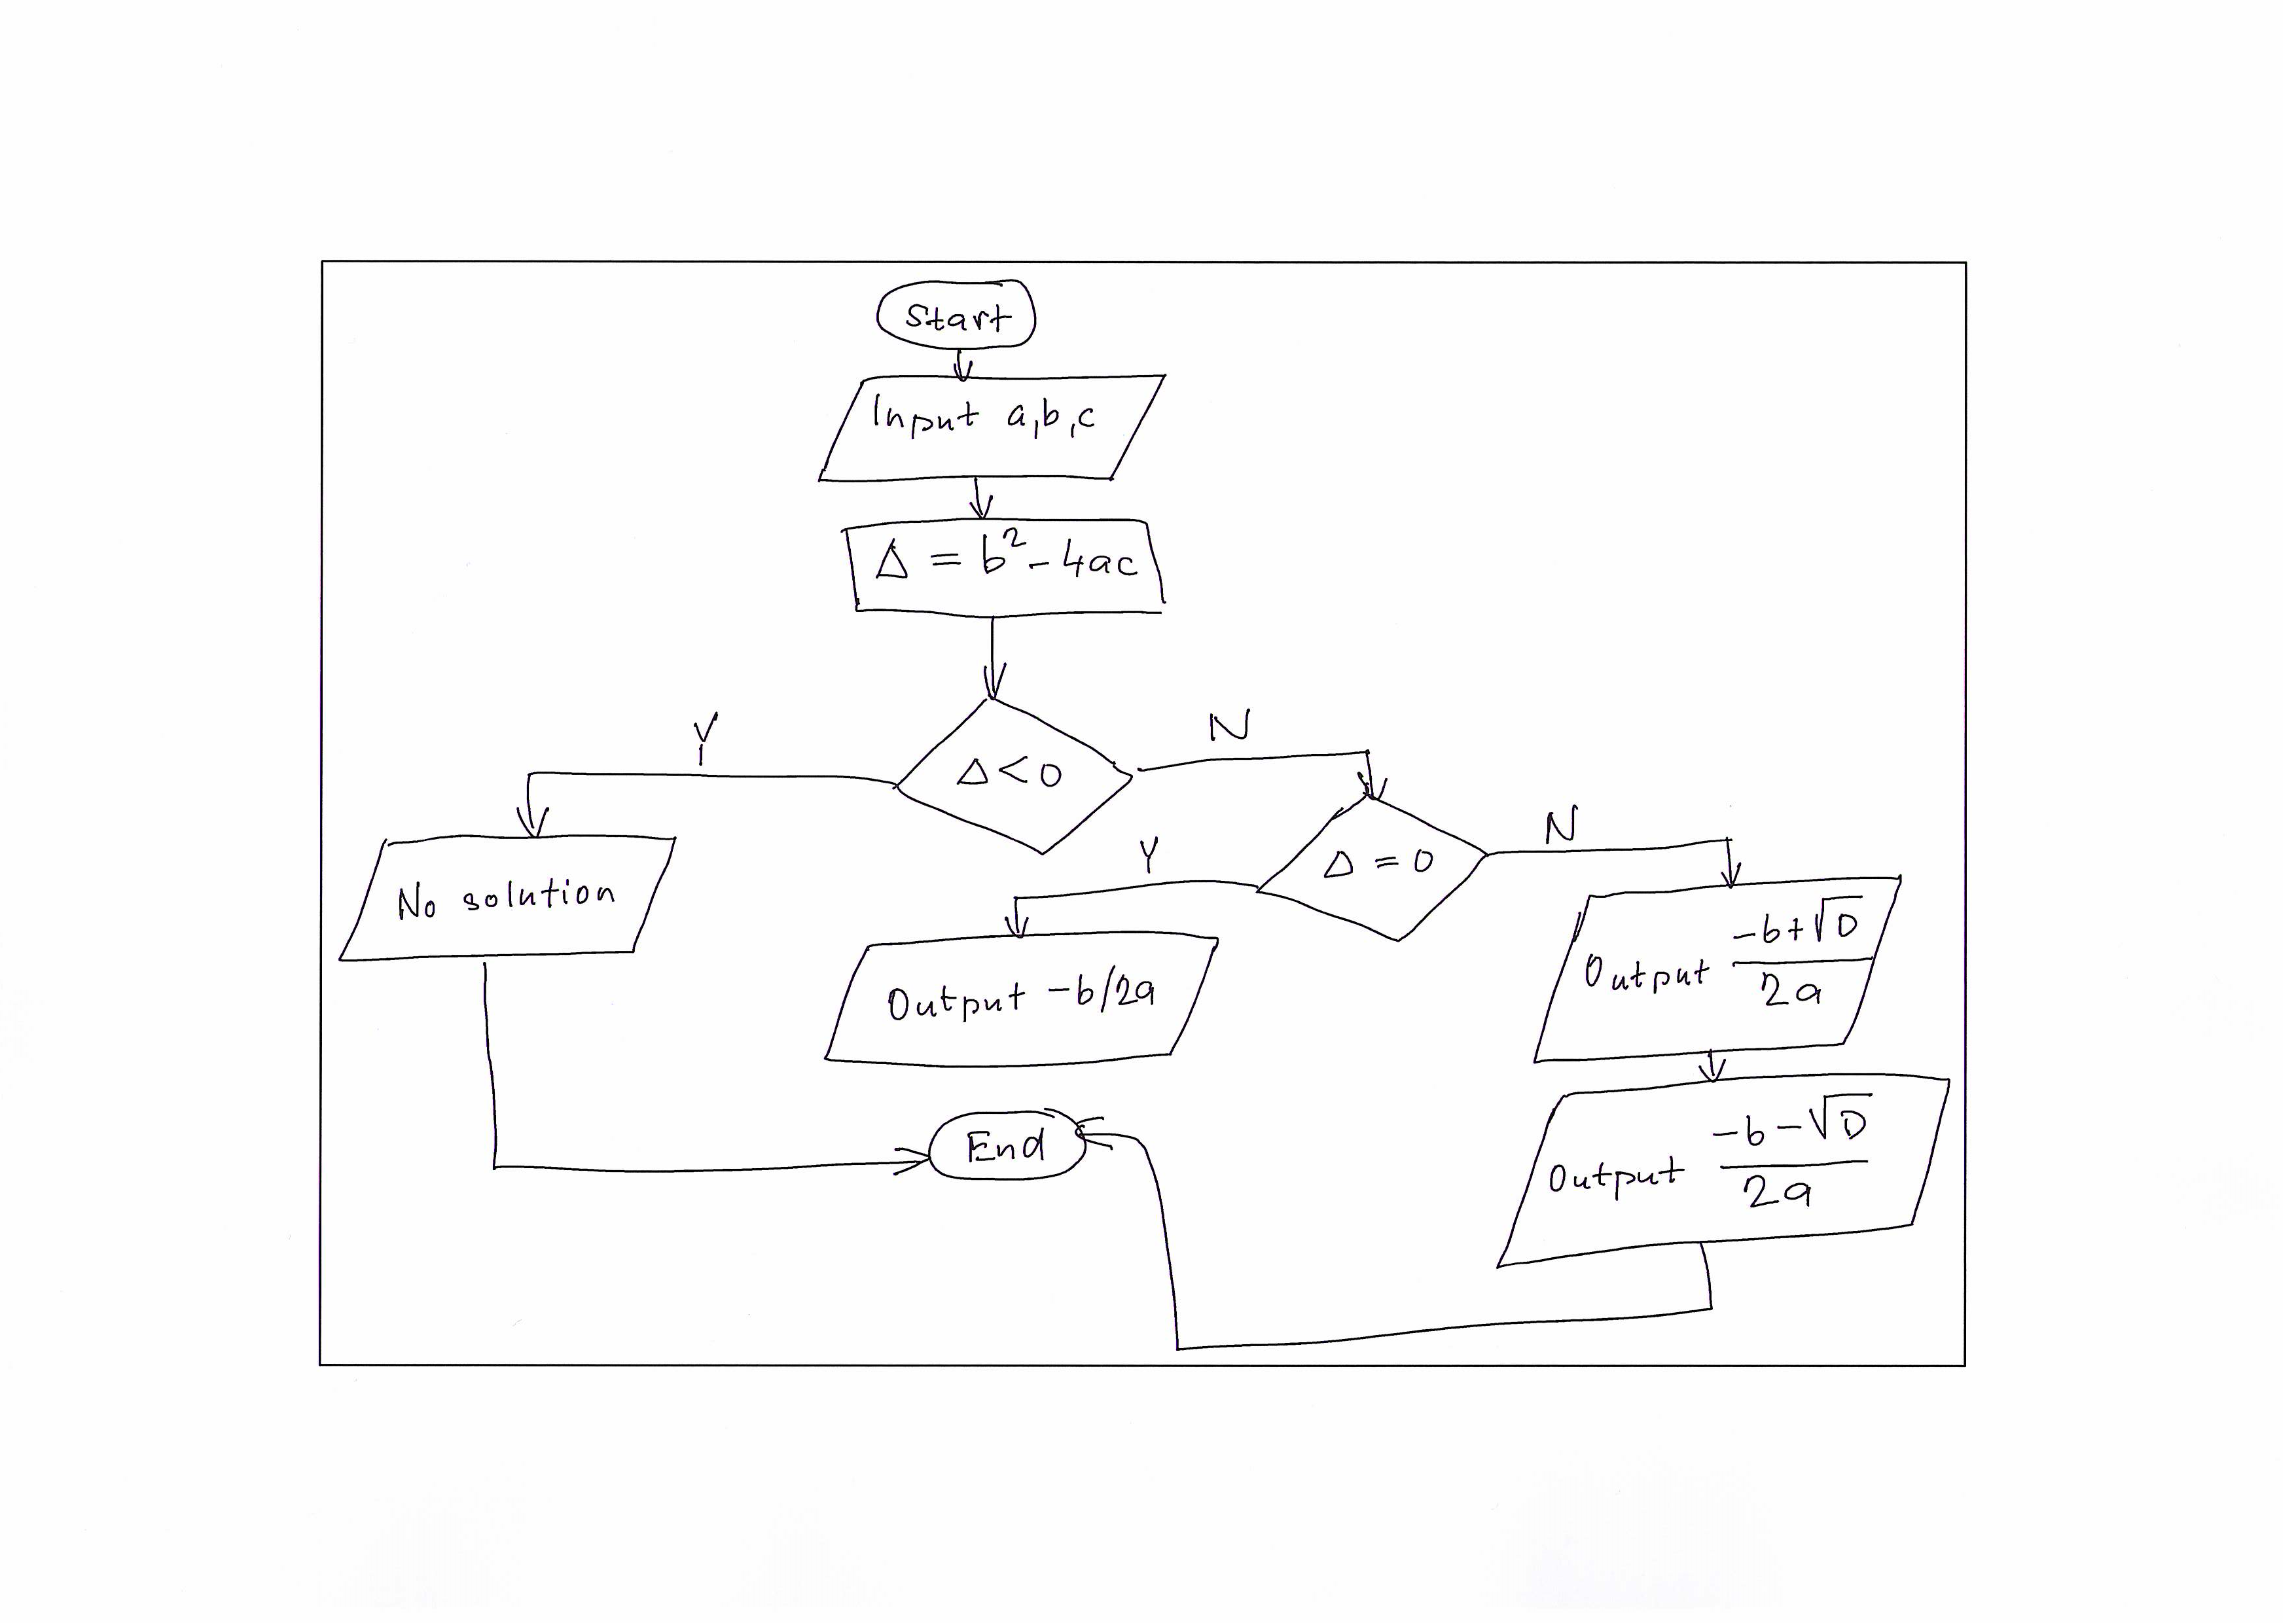 Start
Input a,b,c
Δ = b² - 4ac
Y
Δ < 0
N
No solution
Y
Δ = 0
N
Output -b/2a
Output (-b+√D)/2a
Output (-b-√D)/2a
End